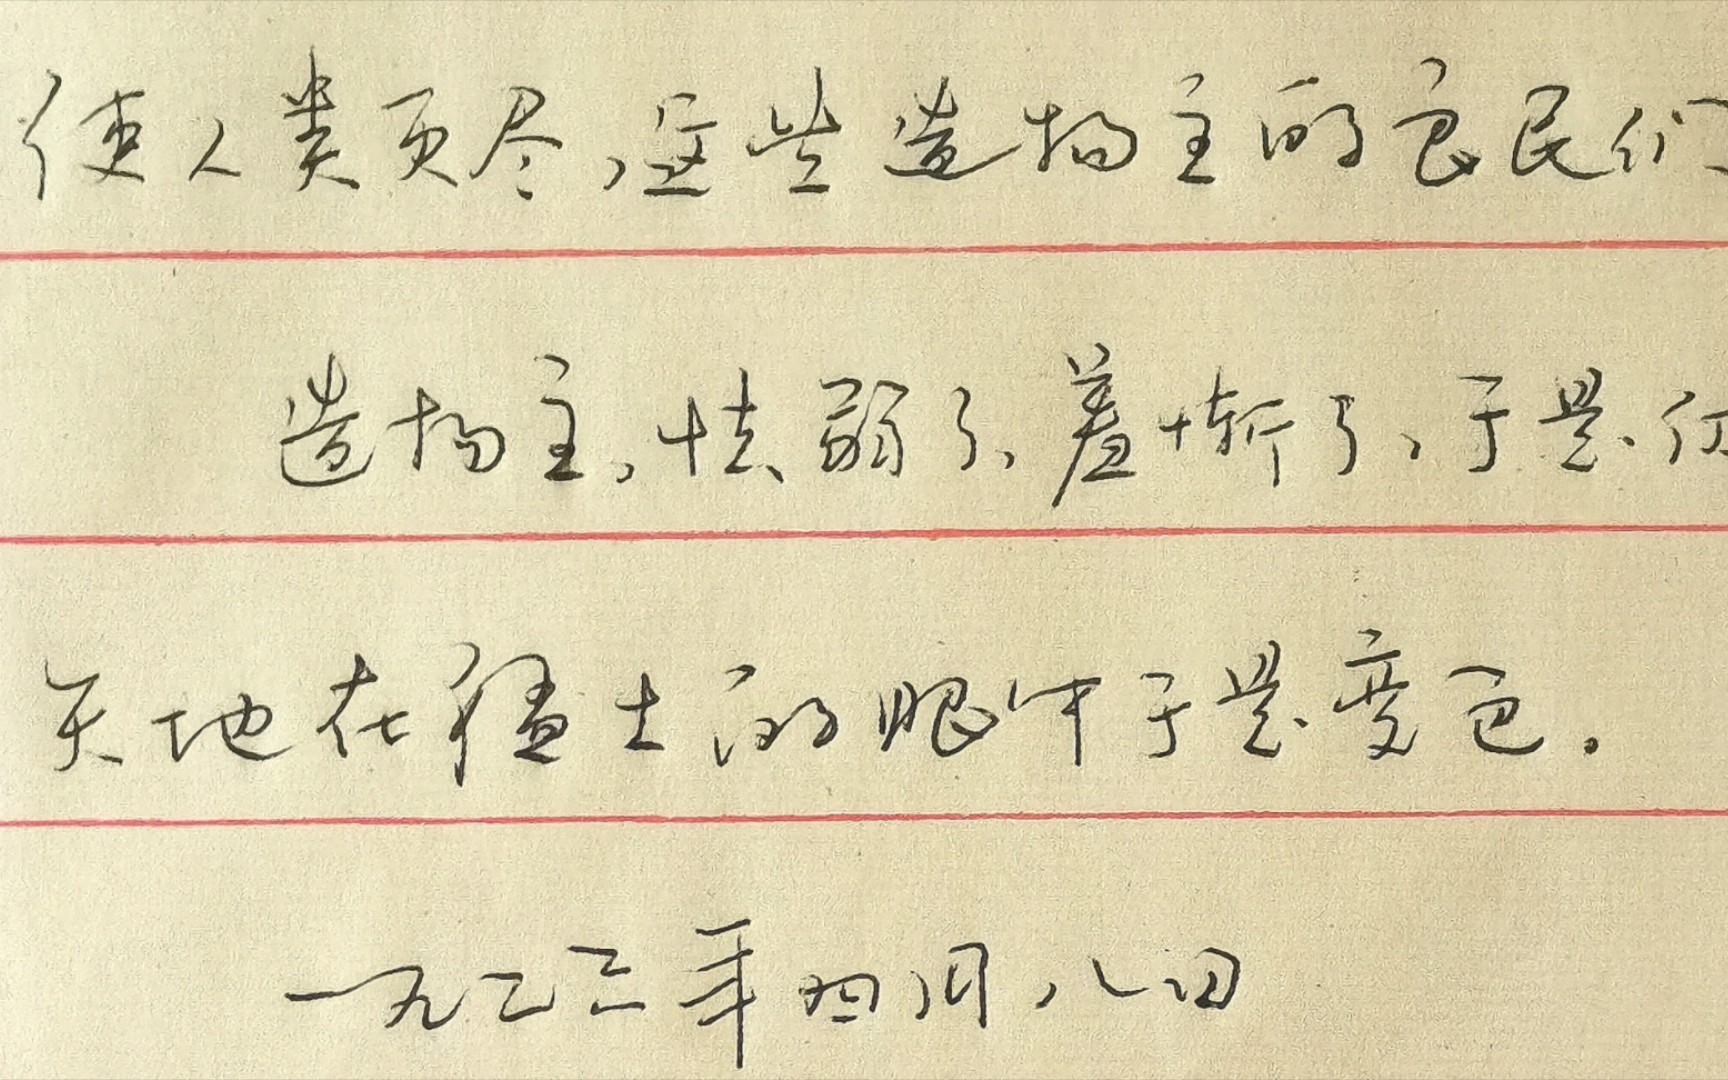 使人类灭尽,这些造物主的良民们
造物主,怯弱了,羞惭了,于是
天地在猛士的眼中于是变色。
一九二三年四月八日